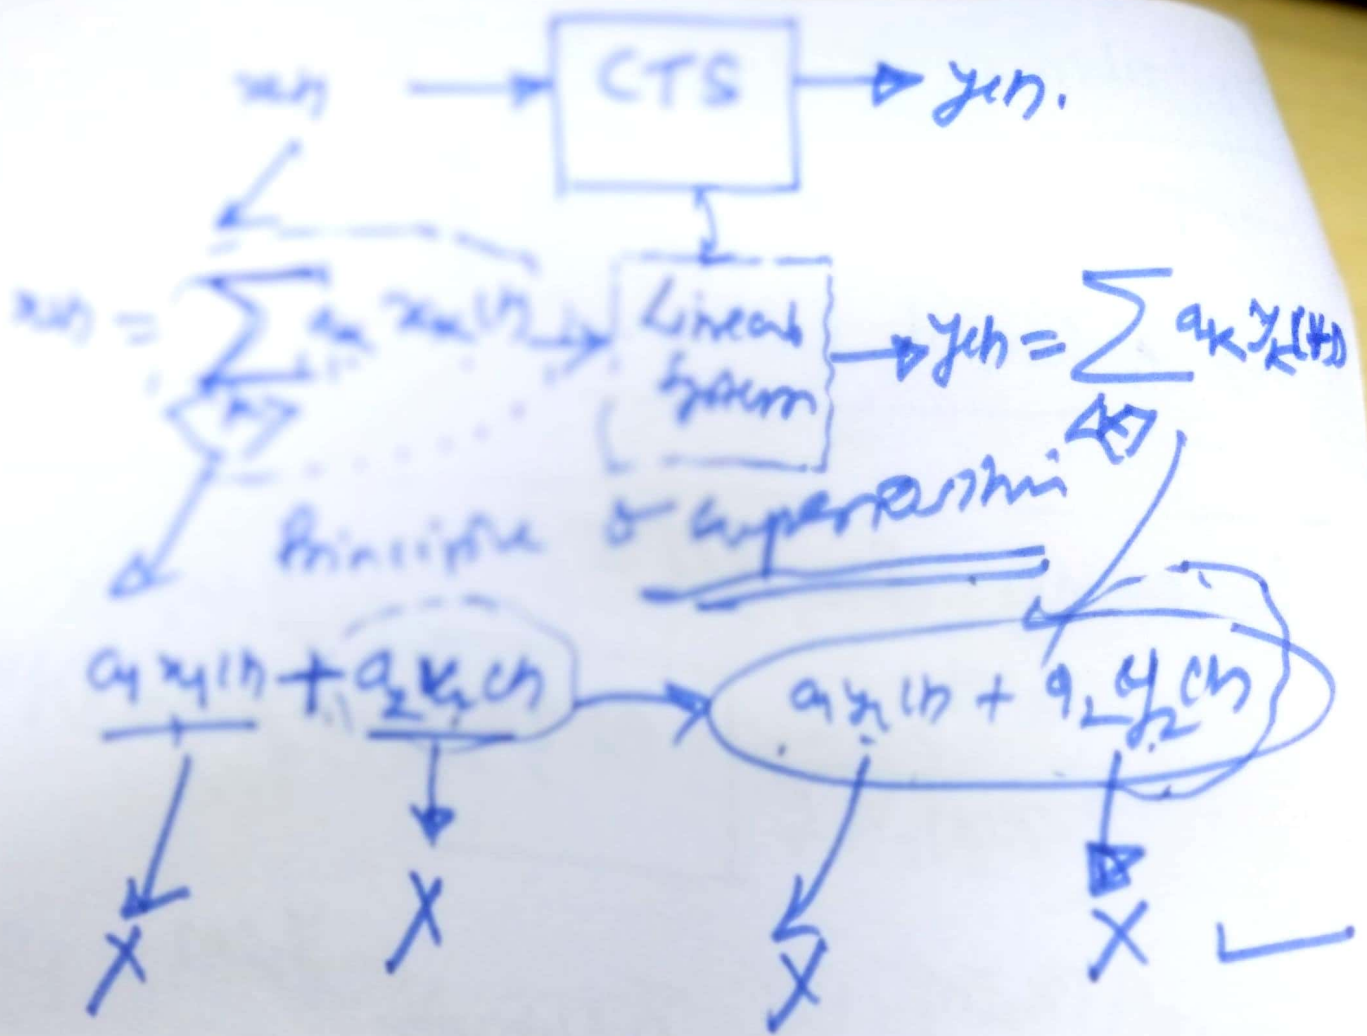 x(t) → CTS → y(t).
x(t) = Σ aₖ xₖ(t) → Linear System → y(t) = Σ aₖ yₖ(t)
<k> <k>
Principle of superposition
a₁x₁(t) + a₂x₂(t) → a₁y₁(t) + a₂y₂(t)
X X X X